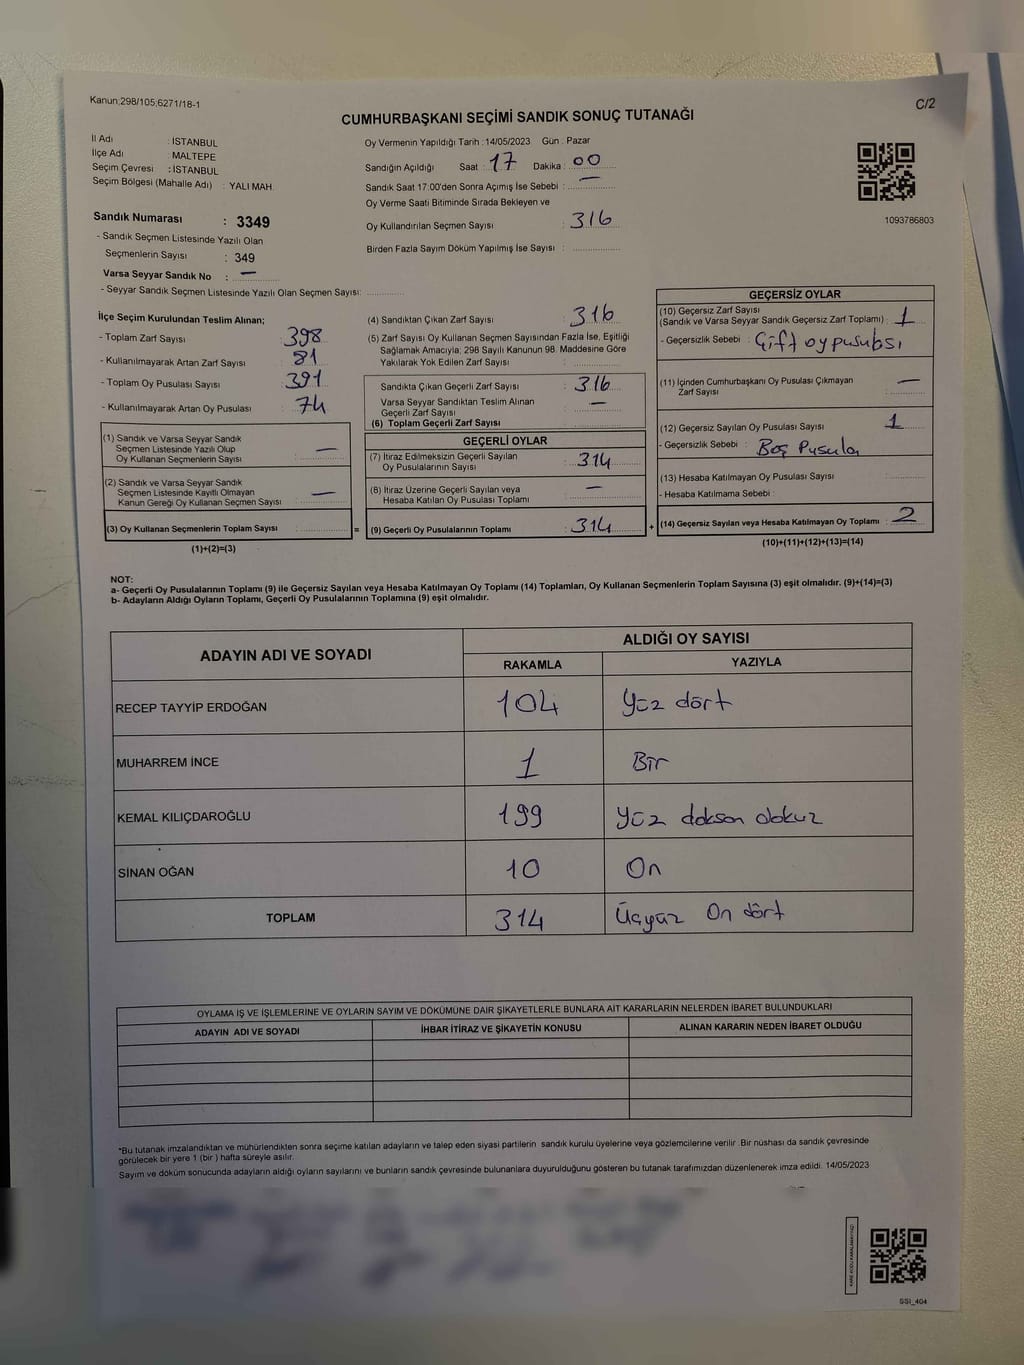 Kanun;298/105;6271/18-1
C/2
CUMHURBAŞKANI SEÇİMİ SANDIK SONUÇ TUTANAĞI
İl Adı : İSTANBUL
İlçe Adı : MALTEPE
Seçim Çevresi : İSTANBUL
Seçim Bölgesi (Mahalle Adı) : YALI MAH.
Oy Vermenin Yapıldığı Tarih :14/05/2023 Gün : Pazar
Sandığın Açıldığı Saat : 17 Dakika : 00
Sandık Saat 17:00'den Sonra Açımış İse Sebebi : —
Oy Verme Saati Bitiminde Sırada Bekleyen ve
Oy Kullandırılan Seçmen Sayısı : 316
Birden Fazla Sayım Döküm Yapılmış İse Sayısı :
1093786803
Sandık Numarası : 3349
- Sandık Seçmen Listesinde Yazılı Olan
Seçmenlerin Sayısı : 349
Varsa Seyyar Sandık No : —
- Seyyar Sandık Seçmen Listesinde Yazılı Olan Seçmen Sayısı:
İlçe Seçim Kurulundan Teslim Alınan;
- Toplam Zarf Sayısı : 398
- Kullanılmayarak Artan Zarf Sayısı : 81
- Toplam Oy Pusulası Sayısı : 391
- Kullanılmayarak Artan Oy Pusulası : 74
(1) Sandık ve Varsa Seyyar Sandık
Seçmen Listesinde Yazılı Olup
Oy Kullanan Seçmenlerin Sayısı : —
(2) Sandık ve Varsa Seyyar Sandık
Seçmen Listesinde Kayıtlı Olmayan
Kanun Gereği Oy Kullanan Seçmen Sayısı : —
(3) Oy Kullanan Seçmenlerin Toplam Sayısı : =
(1)+(2)=(3)
(4) Sandıktan Çıkan Zarf Sayısı : 316
(5) Zarf Sayısı Oy Kullanan Seçmen Sayısından Fazla İse, Eşitliği
Sağlamak Amacıyla; 298 Sayılı Kanunun 98. Maddesine Göre
Yakılarak Yok Edilen Zarf Sayısı :
Sandıkta Çıkan Geçerli Zarf Sayısı : 316
Varsa Seyyar Sandıktan Teslim Alınan
Geçerli Zarf Sayısı : —
(6) Toplam Geçerli Zarf Sayısı :
GEÇERLİ OYLAR
(7) İtiraz Edilmeksizin Geçerli Sayılan
Oy Pusulalarının Sayısı : 314
(8) İtiraz Üzerine Geçerli Sayılan veya
Hesaba Katılan Oy Pusulası Toplamı : —
(9) Geçerli Oy Pusulalarının Toplamı : 314 +
GEÇERSİZ OYLAR
(10) Geçersiz Zarf Sayısı
(Sandık ve Varsa Seyyar Sandık Geçersiz Zarf Toplamı) : 1
- Geçersizlik Sebebi : Çift oy pusulası
(11) İçinden Cumhurbaşkanı Oy Pusulası Çıkmayan
Zarf Sayısı : —
(12) Geçersiz Sayılan Oy Pusulası Sayısı : 1
- Geçersizlik Sebebi : Boş Pusula
(13) Hesaba Katılmayan Oy Pusulası Sayısı :
- Hesaba Katılmama Sebebi :
(14) Geçersiz Sayılan veya Hesaba Katılmayan Oy Toplamı : 2
(10)+(11)+(12)+(13)=(14)
NOT:
a- Geçerli Oy Pusulalarının Toplamı (9) ile Geçersiz Sayılan veya Hesaba Katılmayan Oy Toplamı (14) Toplamları, Oy Kullanan Seçmenlerin Toplam Sayısına (3) eşit olmalıdır. (9)+(14)=(3)
b- Adayların Aldığı Oyların Toplamı, Geçerli Oy Pusulalarının Toplamına (9) eşit olmalıdır.
ADAYIN ADI VE SOYADI
ALDIĞI OY SAYISI
RAKAMLA YAZIYLA
RECEP TAYYİP ERDOĞAN 104 Yüz dört
MUHARREM İNCE 1 Bir
KEMAL KILIÇDAROĞLU 199 Yüz doksan dokuz
SİNAN OĞAN 10 On
TOPLAM 314 Üçyüz On dört
OYLAMA İŞ VE İŞLEMLERİNE VE OYLARIN SAYIM VE DÖKÜMÜNE DAİR ŞİKAYETLERLE BUNLARA AİT KARARLARIN NELERDEN İBARET BULUNDUKLARI
ADAYIN ADI VE SOYADI İHBAR İTİRAZ VE ŞİKAYETİN KONUSU ALINAN KARARIN NEDEN İBARET OLDUĞU
*Bu tutanak imzalandıktan ve mühürlendikten sonra seçime katılan adayların ve talep eden siyasi partilerin sandık kurulu üyelerine veya gözlemcilerine verilir. Bir nüshası da sandık çevresinde
görülecek bir yere 1 (bir ) hafta süreyle asılır.
Sayım ve döküm sonucunda adayların aldığı oyların sayılarını ve bunların sandık çevresinde bulunanlara duyurulduğunu gösteren bu tutanak tarafımızdan düzenlenerek imza edildi. 14/05/2023
KARE KODU KARALAMAYINIZ!
SSI_404